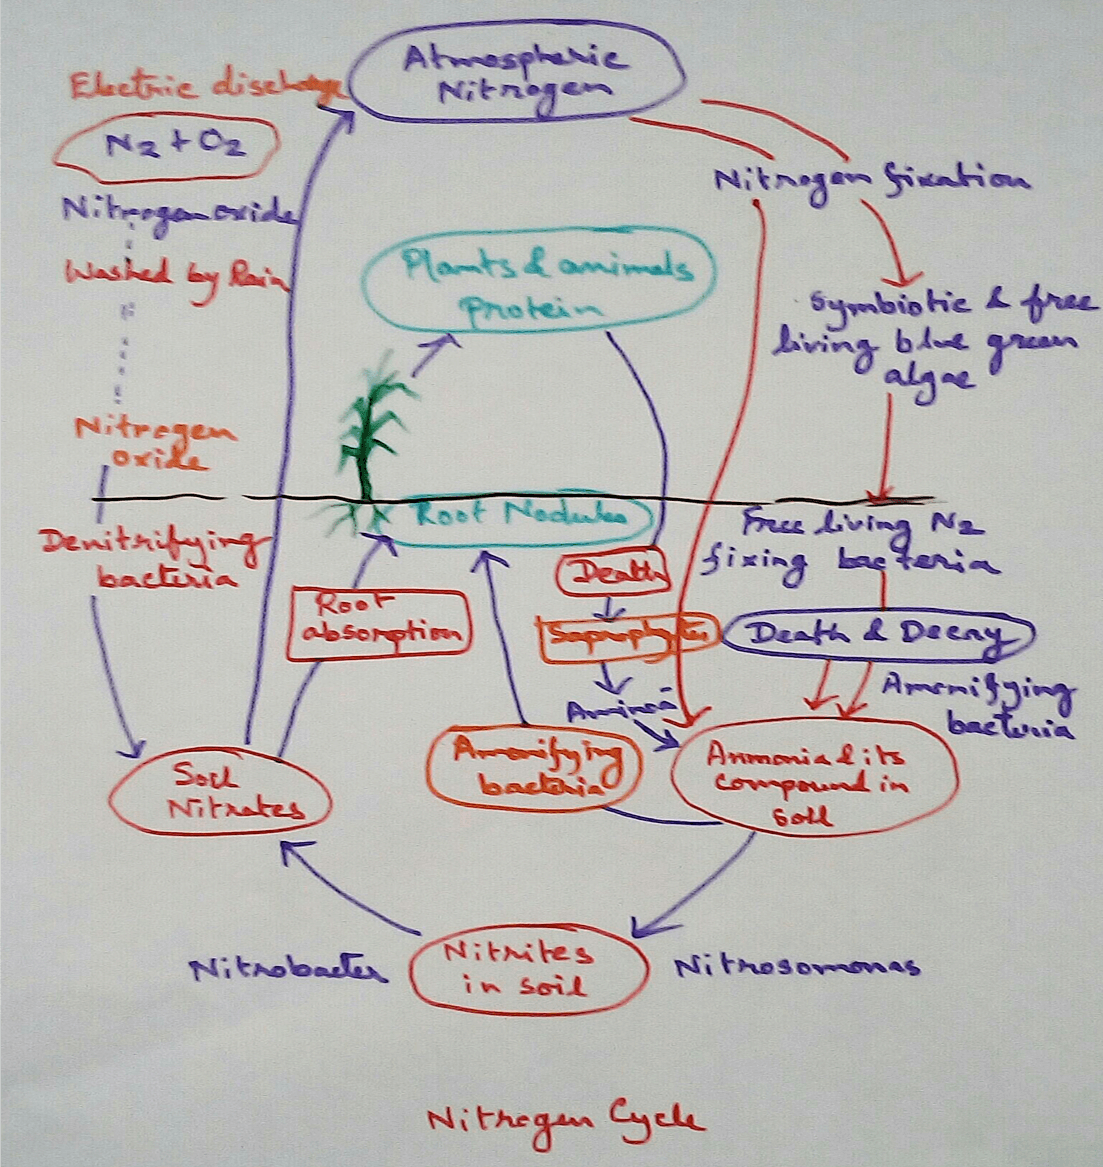 Atmospheric
Nitrogen
Electric discharge
N2 + O2
Nitrogen oxide
Washed by Rain
Nitrogen
oxide
Nitrogen fixation
Plants & animals
protein
Symbiotic & free
living blue green
algae
Root Nodules
Free living N2
fixing bacteria
Denitrifying
bacteria
Death
Root
absorption
Death & Decay
Amonifying
bacteria
Amonifying
bacteria
Ammonia & its
compound in
soil
Soil
Nitrates
Nitrobacter
Nitrites
in soil
Nitrosomonas
Nitrogen Cycle